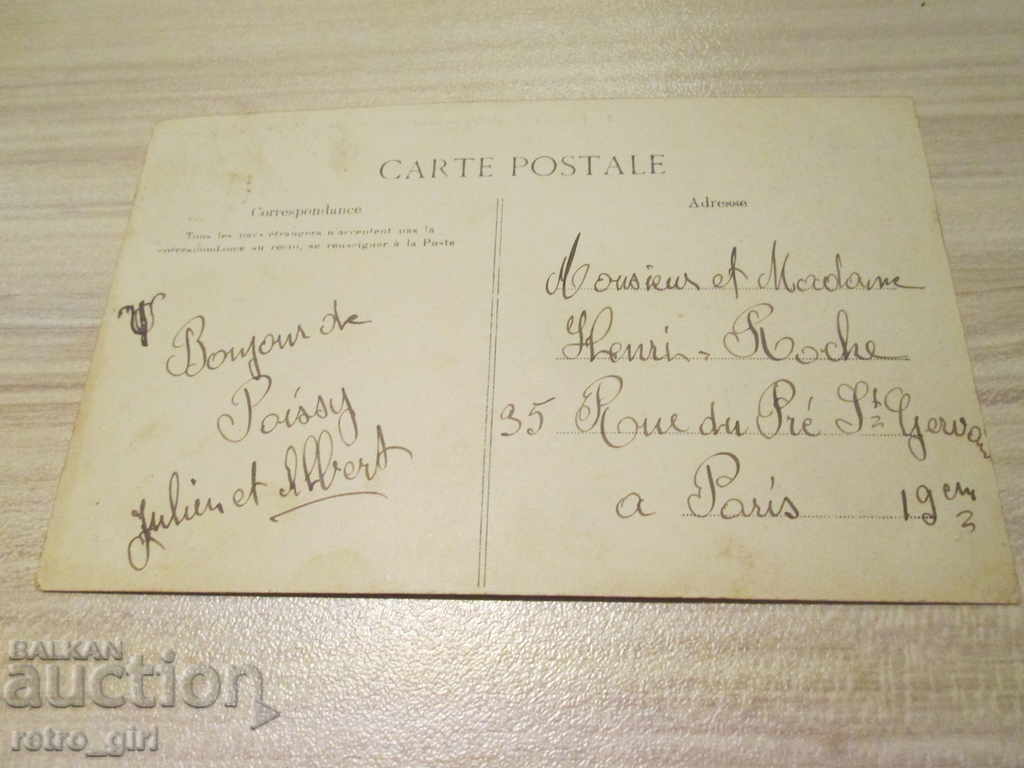 CARTE POSTALE
Correspondance
Tous les pays étrangers n'acceptent pas la
correspondance au recto, se renseigner à la Poste
Bonjour de
Poissy
Julien et Albert
Adresse
Monsieur et Madame
Henri Roche
35 Rue du Pré St Gervais
a Paris 19em
BALKAN
auction
retro_girl